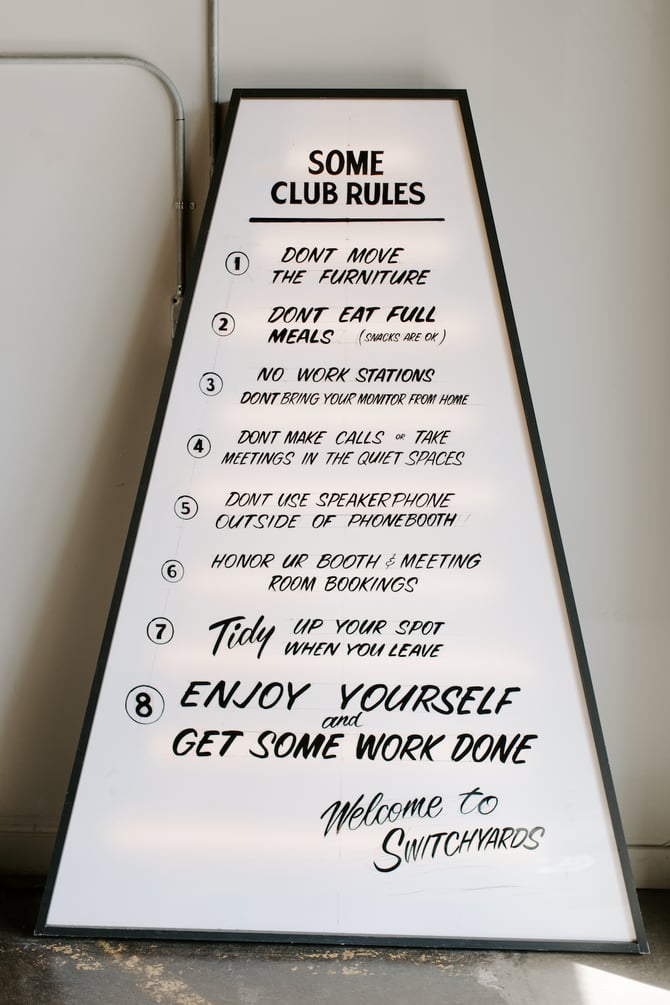 SOME
CLUB RULES
1 DONT MOVE
THE FURNITURE
2 DONT EAT FULL
MEALS (SNACKS ARE OK)
3 NO WORK STATIONS
DONT BRING YOUR MONITOR FROM HOME
4 DONT MAKE CALLS OR TAKE
MEETINGS IN THE QUIET SPACES
5 DONT USE SPEAKERPHONE
OUTSIDE OF PHONEBOOTH
6 HONOR UR BOOTH & MEETING
ROOM BOOKINGS
7 Tidy UP YOUR SPOT
WHEN YOU LEAVE
8 ENJOY YOURSELF
and
GET SOME WORK DONE
Welcome to
SWITCHYARDS